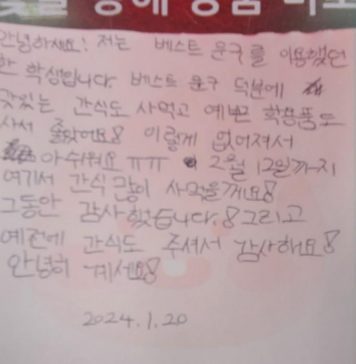 안녕하세요! 저는 베스트 문구를 이용했던
한 학생입니다 베스트 문구 덕분에
맛있는 간식도 사먹고 예쁜 학용품도
사서 좋았어요! 이렇게 없어져서
아쉬워요 ㅠㅠ 2월 12일까지
여기서 간식 많이 사먹을께요!
그동안 감사했습니다.! 그리고
예전에 간식도 주셔서 감사해요!
안녕히 계세요!
2024.1.20